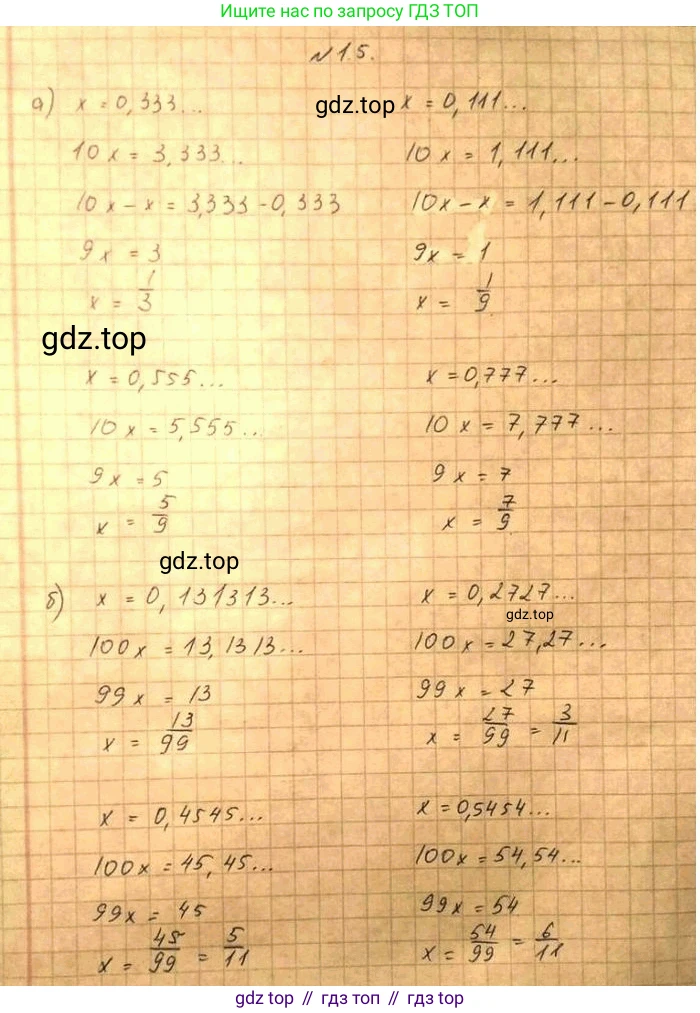 Найди нас по запросу ГДЗ ТОП
№ 1.5.
а) x = 0,333...
10x = 3,333...
10x - x = 3,333 - 0,333
9x = 3
x = 1/3
gdz.top
x = 0,111...
10x = 1,111...
10x - x = 1,111 - 0,111
9x = 1
x = 1/9
gdz.top
x = 0,555...
10x = 5,555...
9x = 5
x = 5/9
x = 0,777...
10x = 7,777...
9x = 7
x = 7/9
gdz.top
б) x = 0,131313...
100x = 13,1313...
99x = 13
x = 13/99
x = 0,2727...
gdz.top
100x = 27,27...
99x = 27
x = 27/99 = 3/11
x = 0,4545...
100x = 45,45...
99x = 45
x = 45/99 = 5/11
x = 0,5454...
100x = 54,54...
99x = 54
x = 54/99 = 6/11
gdz.top // гдз топ // gdz.top